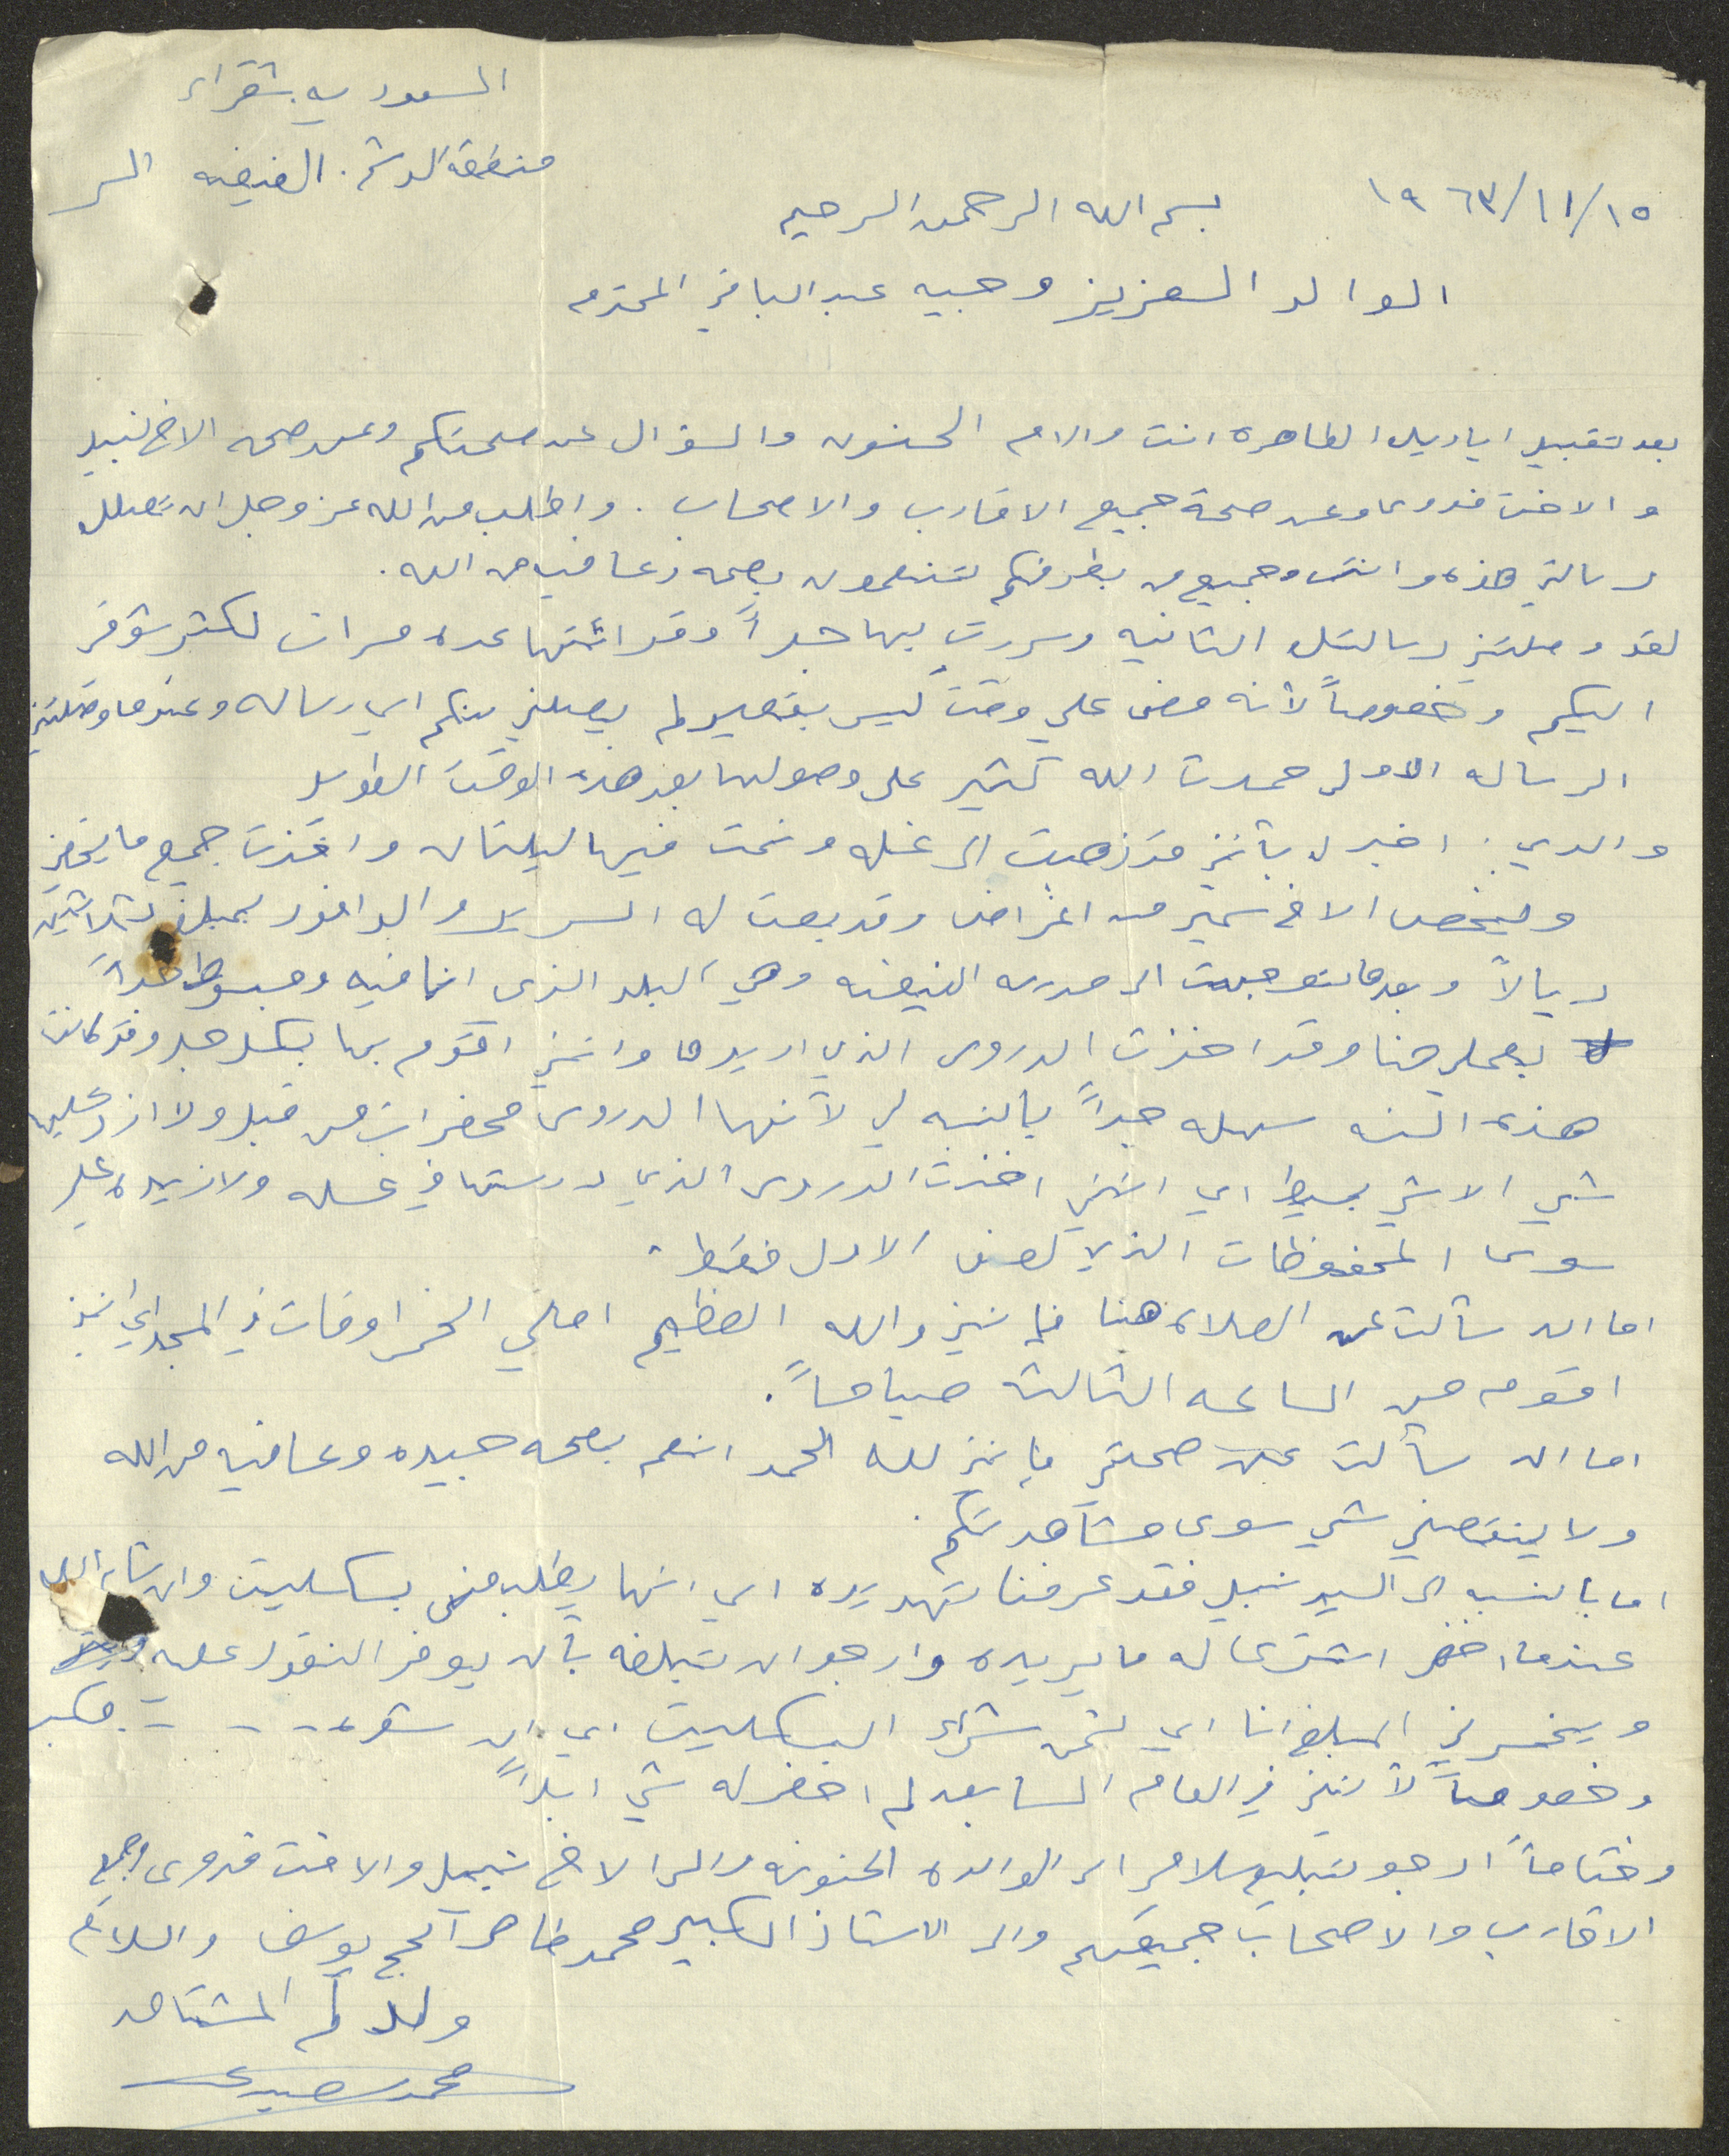 السعوديه شقراء
منطقة الوشم. الفيضه السر
١٩٦٣/١١/١٥
بسم الله الرحمن الرحيم
الوالد العزيز وجيه عبد الباقي المحترم
بعد تقبيل اياديك الطاهره انت والام الحنون والسؤال عن صحتكم وعن صحه الاخ نبيل
والاخت فدوى وعن صحة جميع الاقارب والاصحاب. واطلب من الله عز وجل ان تصلك
رسالتي هذه وانت وجميع من بطرفكم تنعمون بصحه وعافيه من الله.
لقد وصلتني رسالتك الثانيه وسررت بها جداً وقرائتها عده مرات لكثر شوقي
اليكم وخصوصاً لأنه مضى علي وقت ليس بقصير لم يصلني منكم اي رساله وعندما وصلتني
الرساله الاولى حمدت الله كثير على وصولها بعد هذه الوقت الطويل
والدي: اخبرك بأنني قد ذهبت الى غسله ونمت فيها ليلتان واخذت جميع ما يخصني
ويخص الاخ سمير من اغراض وقد بعت له السرير والبوافور بمبلغ ثلاثين
ريالاً وبعدها توجهت الى مدرسه الفيضه وهي البلد الذي انا فيه ومبسوط جداً
بعملي هنا وقد اخذت الدروس الذي اريدها وانني اقوم بها بكل جد وقد كانت
هذه السنه سهله جداً بالنسبه لي لأنها الدروس محضرات من قبل ولا ازد عليها
شي الا شي بسيط اي انني اخذت الدروس الذي درستها في غسله ولا زيده علي
سوى المحفوظات الذي لصف الاول فقط.
اما ان سألت عن الصلاه هنا فإنني والله العظيم اصلي الخمس اوقات في المسجد اي انني
اقوم من الساعه الثالثه صباحاً.
اما ان سألت عن صحتي فإنني لله الحمد انعم بصحه جيده وعافيه من الله
ولا ينقصني شي سوى مشاهدتكم.
اما بالنسبه الى السيد نبيل فقد عرفنا تهديده اي انها يطلب مني بسكليت وان شاء الله
عندما احضر اشترى له ما يريده وارجو ان تبلغه بأن يوفر النقود عليه
ويخسرني المبلغ انا اي ثمن شراء البسكليت اي ان شوره - - - مكسر
وخصوصاً لأنني في العام السابعد لم احضر له شي ابداً
وختاماً ارجو تبليغ سلامي الى الوالده الحنونه والى الاخ نبيل والاخت فدوى وجميع
الاقارب والاصحاب جميعكم والى الاستاذ الكبير محمد ظاهر آلحج يوسف والسلام
ولدكم المشتاق
محمد سعيد